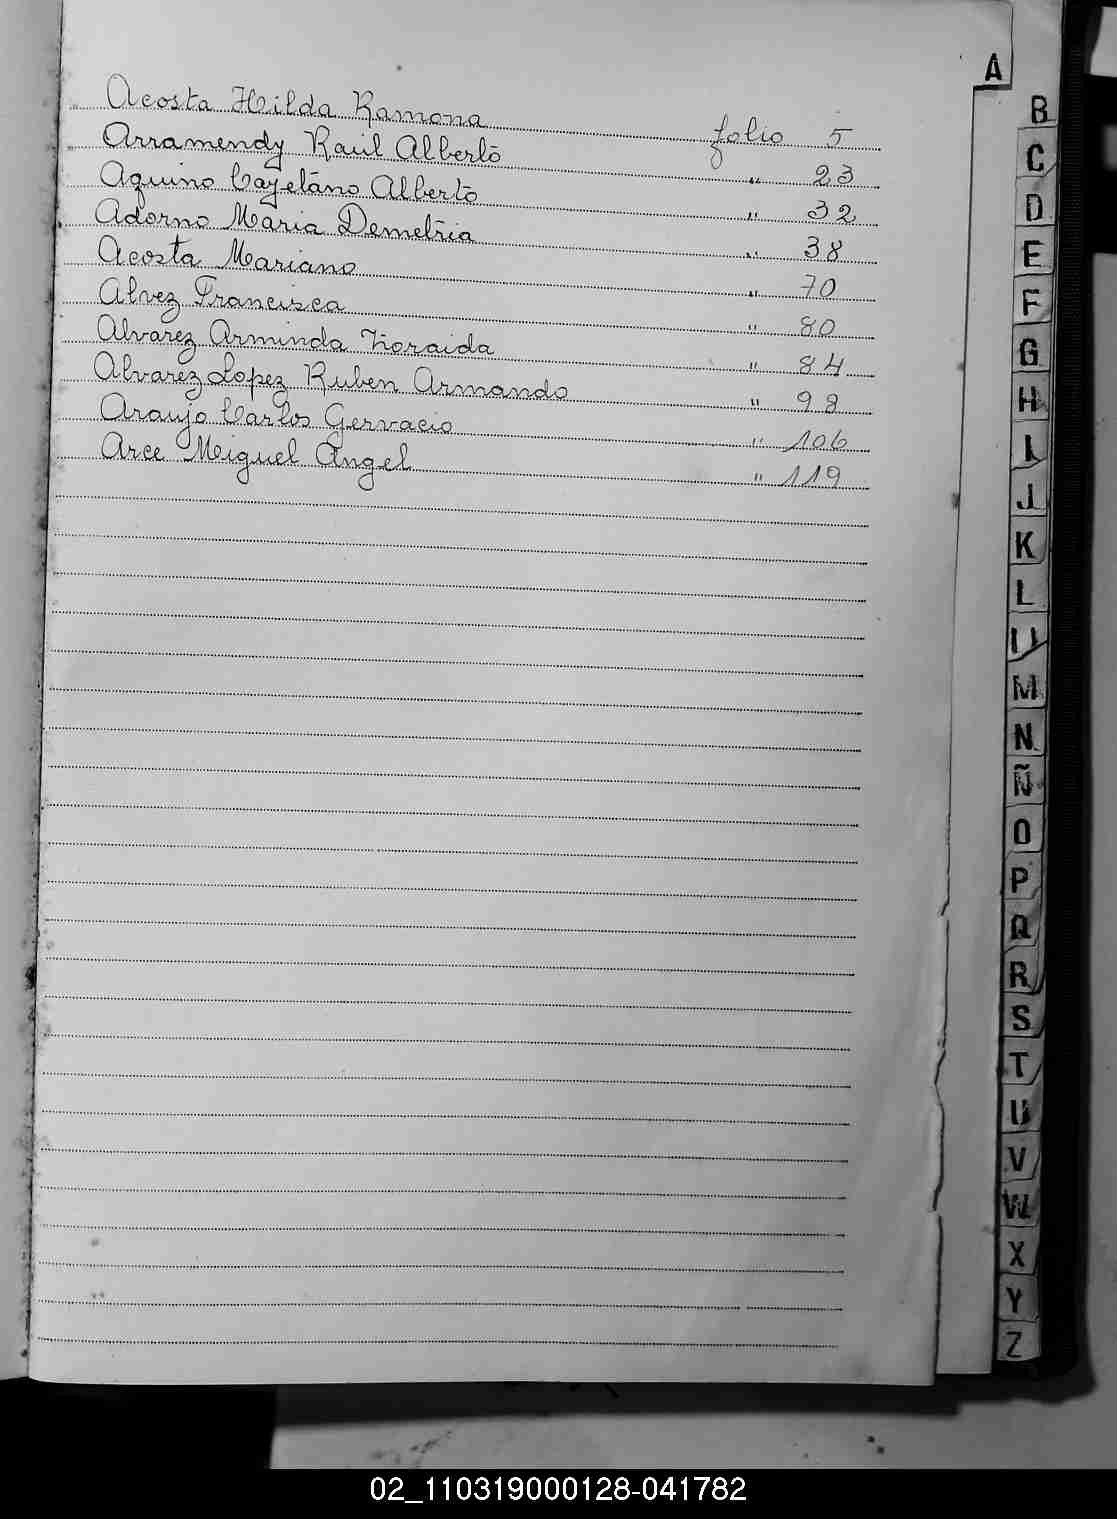 A
Acosta Hilda Ramona folio 5
Arramendy Raúl Alberto " 23
Aquino Cayetano Alberto " 32
Adorno Maria Demetria " 38
Acosta Mariano " 70
Alvez Francisca " 80
Alvarez Arminda Zoraida " 84
Alvarez Lopez Ruben Armando " 98
Araujo Carlos Gervacio " 106
Arce Miguel Angel " 119
B
C
D
E
F
G
H
I
J
K
L
M
N
Ñ
O
P
Q
R
S
T
U
V
W
X
Y
Z
02_110319000128-041782